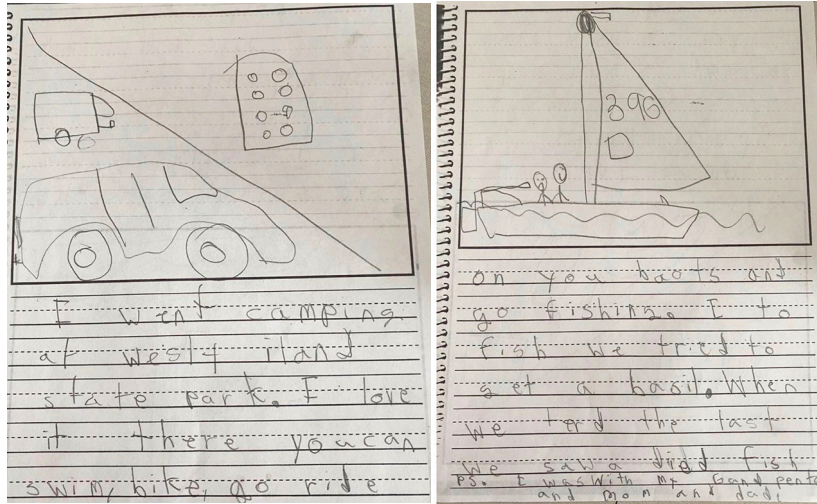 I went camping
at wesly iland
state park. I love
it there you can
swim, bike, go ride
390
on you baots and
go fishing. I to
fish we tried to
get a basil. When
we terd the last
we saw a died fish
PS. I was with my Gand pents
and mom and dad!